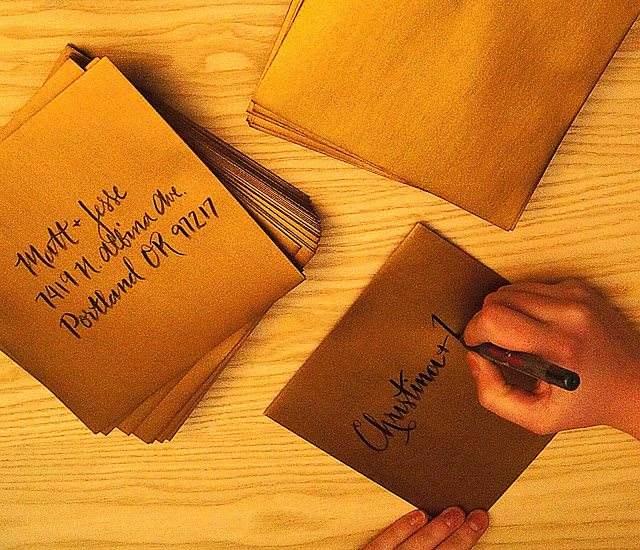 Matt + Jesse
7419 N. Albina Ave.
Portland OR 97217
Christina +